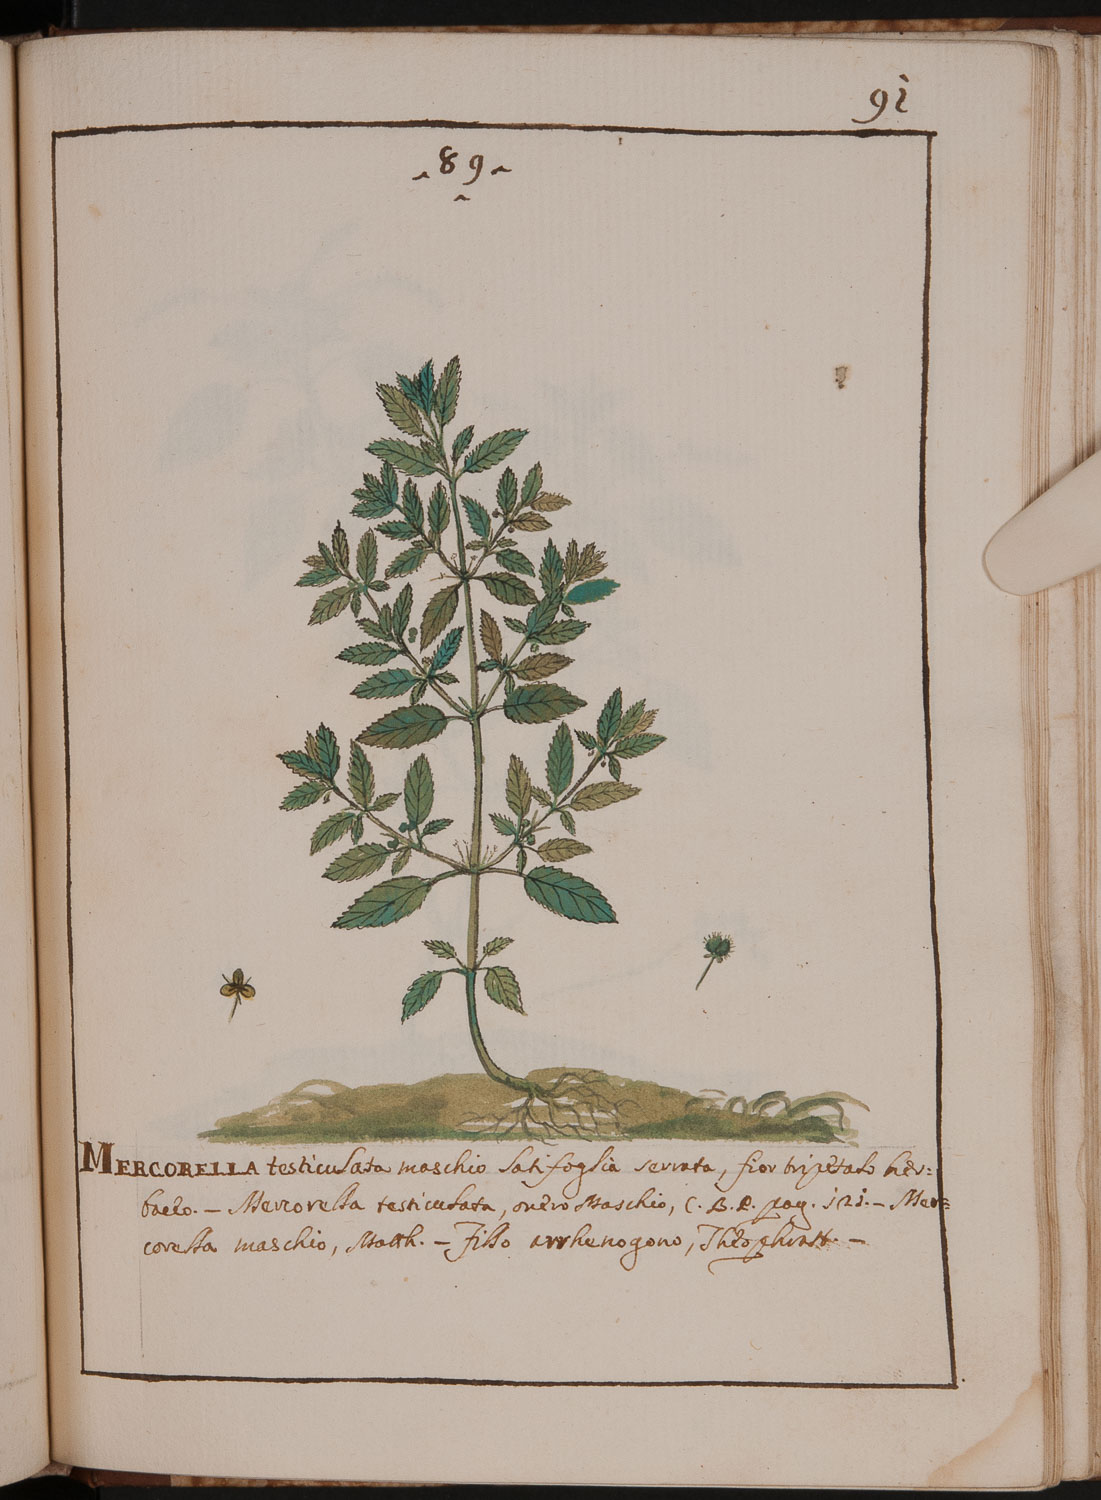 91
89
MERCORELLA testiculata maschio latifoglia serrata, fior tripètalo hèr=
bacèo. – Mercorella testiculata, ovèro Maschio, C. B. P. pag. 121. – Mer=
corella maschio, Matth. – Fillo arrhenogono, Thèophrast. –